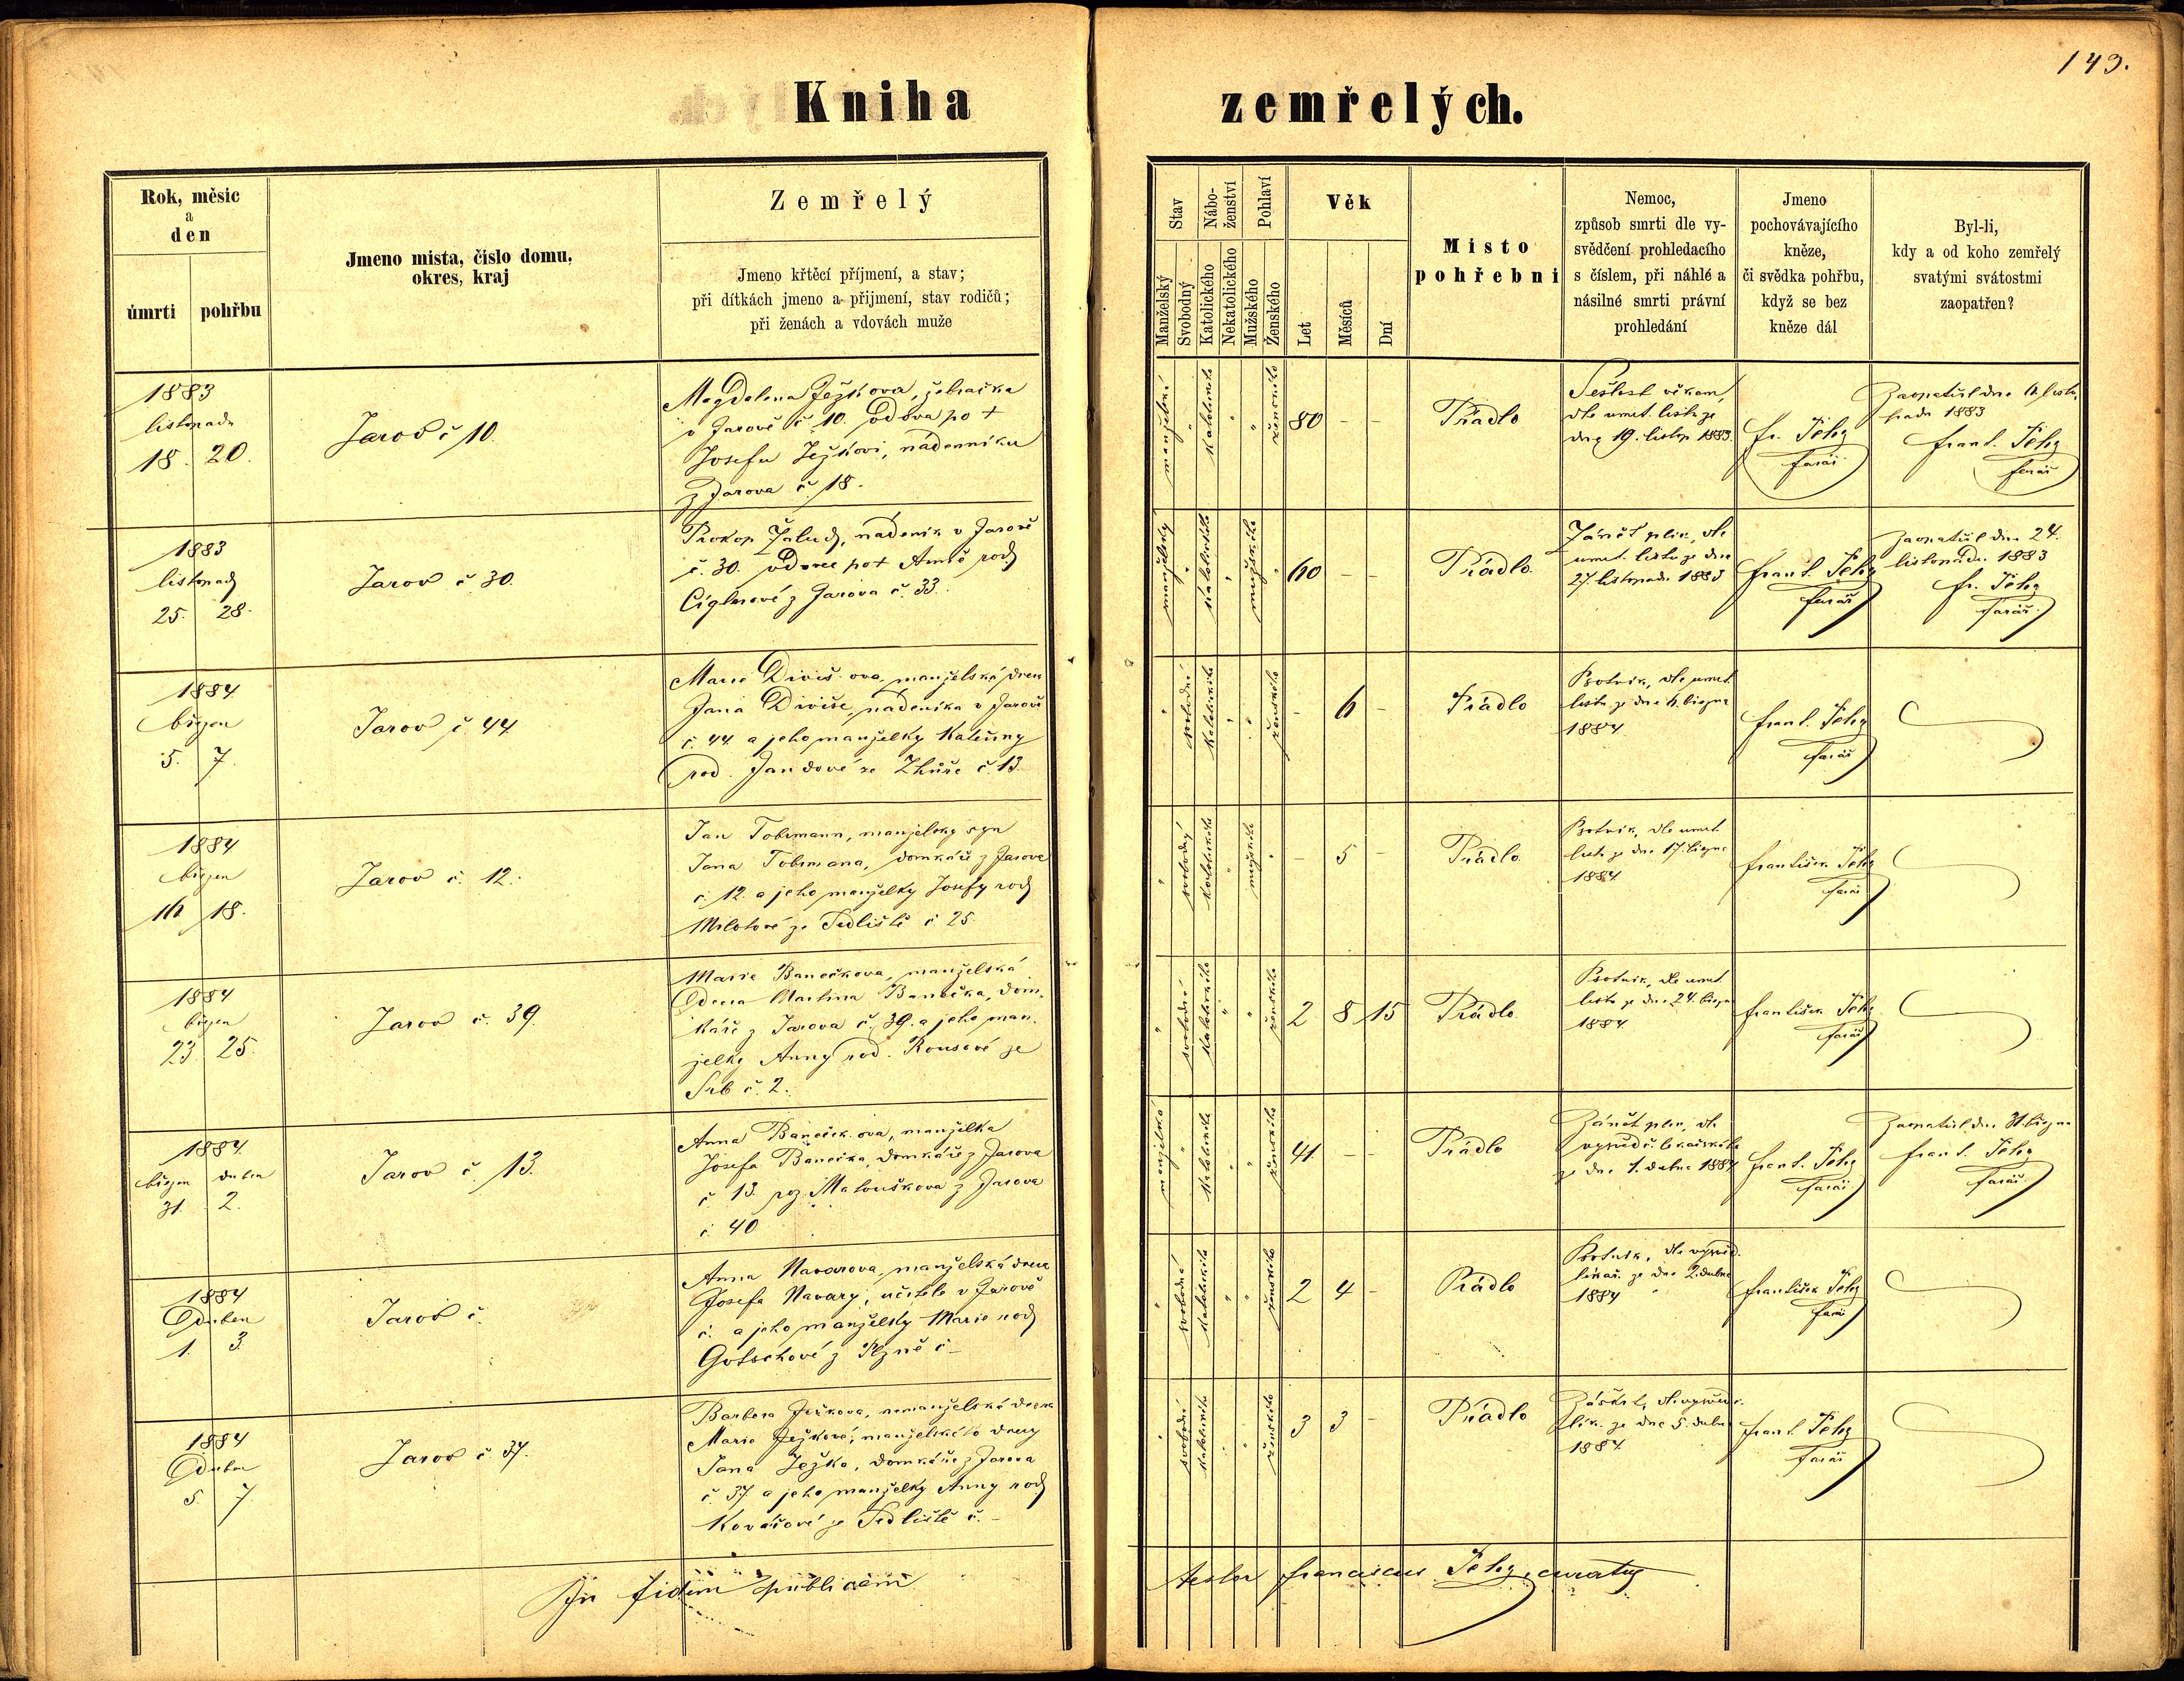 143.
Kniha zemřelých.
Rok, měsic
a
den
úmrti
pohřbu
Jmeno mista, číslo domu,
okres, kraj
Zemřelý
Jmeno křtěcí příjmení, a stav;
při dítkách jmeno a přijmení, stav rodičů;
při ženách a vdovách muže
Stav
Nábo-
ženství
Pohlaví
Manželský
Svobodný
Katolického
Nekatolického
Mužského
Ženského
Věk
Let
Měsíců
Dní
Misto
pohřebni
Nemoc,
způsob smrti dle vy-
svědčení prohledacího
s číslem, při náhlé a
násilné smrti právní
prohledání
Jmeno
pochovávajícího
kněze,
či svědka pohřbu,
když se bez
kněze dál
Byl-li,
kdy a od koho zemřelý
svatými svátostmi
zaopatřen?
1883
listopadu
18. 20.
Jarov č 10.
Magdalena Ježkova, žebračka
v Jarově č 10. vdova po +
Josefu Ježkovi, nádenníku
z Jarova č. 18.
katolického
ženského
80 - -
Prádlo
Sešlost věkem,
dle umrt. listu ze
dne 19. listop. 1883.
fr.
farář
Zaopatřil dne
padu 1883
frant.
farář
1883
listopad
25. 28.
Jarov č 30.
Prokop Žalud, nádeník v Jarově
č. 30. vdovec po +
z Jarova č. 33.
manželský
katolického
mužského
60 - -
Prádlo.
Zánět plic, dle
umrt. listu ze dne
27. listopadu 1883
frant.
farář
Zaopatřil dne 24.
listopadu 1883
fr.
farář.
1884
březen
5. 7.
Jarov č. 44.
Marie Divišova, manželská dcera
Jana Diviše, nádeníka v Jarově
č. 44. a jeho manželky Kateřiny
rod. Jandové ze Zhůře č. 13.
svobodné
katolického
ženského
- 6 -
Prádlo
Psotník, dle umrt.
listu ze dne 6. března
1884.
frant.
farář
1884
březen
16 18.
Jarov č. 12.
Jan Tobrmann, manželský syn
Jana Tobrmana, domkáře z Jarova
č. 12. a jeho manželky Josefy rod
ze Sedliště č 25
svobodný
katolického
mužského
- 5 -
Prádlo
Psotník, dle umrt.
listu ze dne 17. března
1884.
František
farář
1884
březen
23. 25.
Jarov č. 39.
Marie Banečkova, manželská
dcera Martina Banečka, dom-
káře z Jarova č. 39. a jeho man-
želky Anny rod. Rousové ze
Srb č. 2.
svobodné
katolického
ženského
2 8 15
Prádlo
Psotník, dle umrt.
listu ze dne 24. března
1884
František
farář
1884.
březen duben
31. 2.
Jarov č. 13.
Anna Banečkova, manželka
Josefa Banečka, domkáře z Jarova
č 13. roz. Matouškova z Jarova
č. 40
katolického
ženského
41. - -
Prádlo
Zánět plic, dle
vysvědč. lékařského
ze dne 1. dubna 1884
frant.
farář
Zaopatřil dne 31. března
frant.
farář.
1884
Duben
1. 3.
Jarov č.
Anna Navarova, manželská dcera
Josefa Navary, učitele v Jarově
č. a jeho manželky Marie rod
Gotschové z Plzně č -
svobodné
katolického
ženského
2 4 -
Prádlo
Psotník, dle vysvěd.
lékař. ze dne 2. dubna
1884
František
farář
1884
Duben
5. 7.
Jarov č. 37.
Barbora Ježkova, nemanželská dcera
Marie Ježkové, manželské to dcery
Jana Ježka, domkáře z Jarova
č. 37 a jeho manželky Anny rod
Kovářové ze Sedliště č. -
svobodné
katolického
ženského
3 3 -
Prádlo
Záškrt, dle vysvědč.
lék. ze dne 5. dubna
1884
frant.
farář
In fidem publicam
testor Franciscus curatus